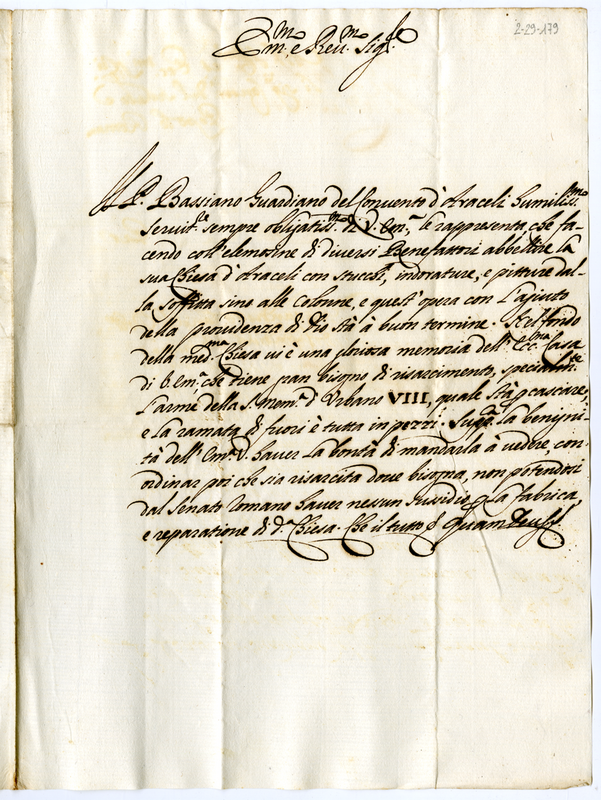 2-29-179
Em.mo e Reu.mo Sig.re
Il P. Bassiano Guardiano del Conuento d'Araceli humiliss.mo
seruit.e sempre obligatiss.mo di V. Em.a le rappresenta, che fa-
cendo coll'elemosine di diuersi Benefattori abbellire la
sua Chiesa d'Araceli con stucchi, indorature, e pitture dal-
la soffitta sino alle Colonne, e quest'opera con l'ajuto
della prouidenza di Dio stà à buon termine. Nel fondo
della med.ma Chiesa ui è una gloriosa memoria dell'Ecc.ma Casa
di V. Em.a, che tiene gran bisogno di risarcimento, specialm.te
l'arme della S. Mem.a d'Urbano VIII, quale stà p cascare,
e la ramata di fuori è tutta in pezzi. Supp.ca la benigni-
tà dell'Em.a V. hauer la bontà di mandarla à uedere, con
ordinar poi che sia risarcita doue bisogna, non potendosi
dal Senato Romano hauer nessun sussidio p la fabrica,
e reparatione di d.a Chiesa. Che il tutto &c. Quam Deus &c.